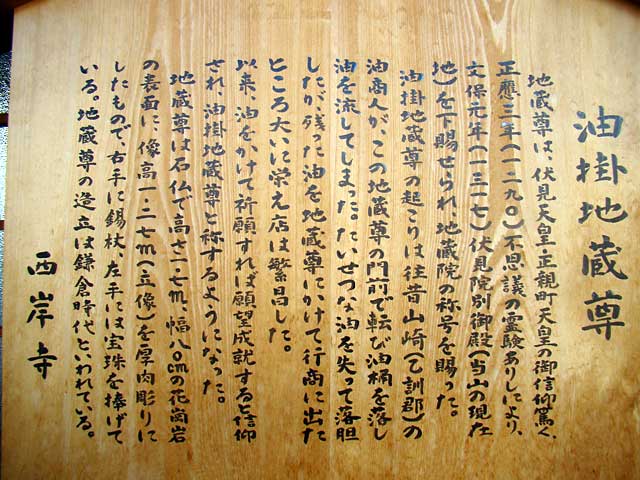 油掛地蔵尊
地蔵尊は、伏見天皇、正親町天皇の御信仰篤く、
正應三年(一二九〇)不思議の霊験ありしにより、
文保元年(一三一七)伏見院別御殿(当山の現在
地)を下賜せられ、地蔵院の称号を賜った。
油掛地蔵尊の起こりは往昔山崎(乙訓郡)の
油商人が、この地蔵尊の門前で転び油桶を落し
油を流してしまった。たいせつな油を失って落胆
したが、残った油を地蔵尊にかけて行商に出た
ところ大いに栄え店は繁昌した。
以来、油をかけて祈願すれば願望成就すると信仰
され、油掛地蔵尊と称するようになった。
地蔵尊は石仏で高さ一・七m、幅八〇cmの花崗岩
の表面に、像高一・二七m(立像)を厚肉彫りに
したもので、右手に錫杖、左手には宝珠を捧げて
いる。地蔵尊の造立は鎌倉時代といわれている。
西岸寺